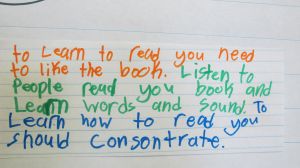 to Learn to read you need
to like the book. Listen to
People read you book and
Learn words and sound. To
Learn how to read you
should consontrate.